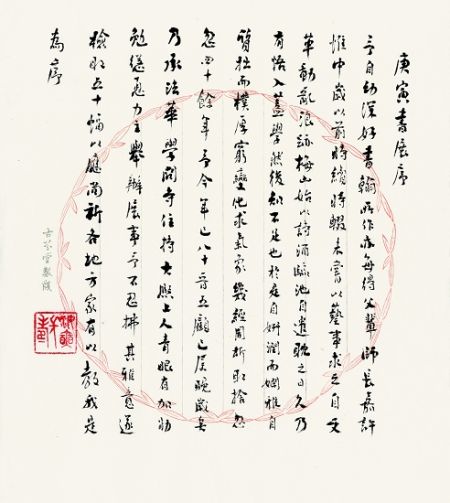 庚寅書展序
予自幼深好書翰所作亦每得父輩師長嘉許
惟中歲以前時續時輟未嘗以藝事求之自文
革動亂浪跡梅山始以詩酒臨池自遣耽之日久乃
有悟入蓋學然後知不足也於是自妍潤而嫻雅自
質拙而樸厚窮變化求氣象幾經周折取捨忽
忽四十餘年予今年已八十晉五顧已屆晚歲矣
乃承法華學問寺住持大照上人青眼有加勸
勉慫恿力主舉辦展事予不忍拂其雅意遂
檢取五十幅以應尚祈各地方家有以教我是
為序